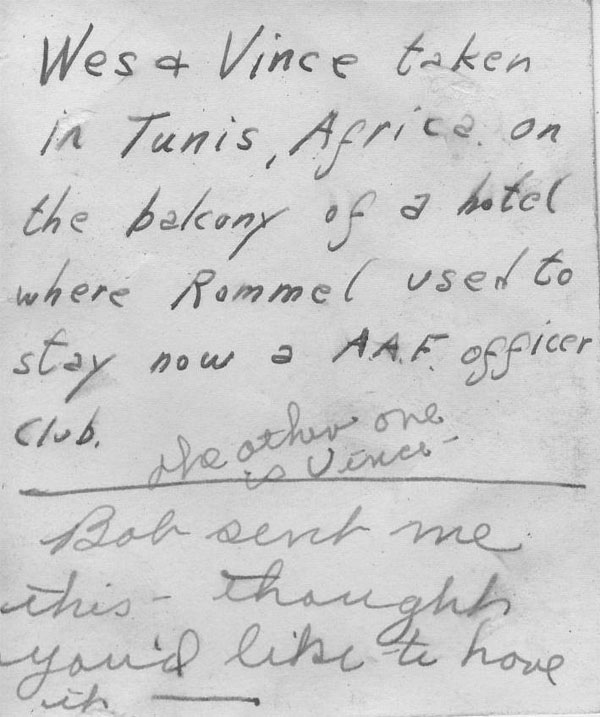 Wes & Vince taken
in Tunis, Africa. on
the balcony of a hotel
where Rommel used to
stay now a A.A.F. officer
Club.
the other one
is Vince-
Bob sent me
this - thought
you'd like to have
it